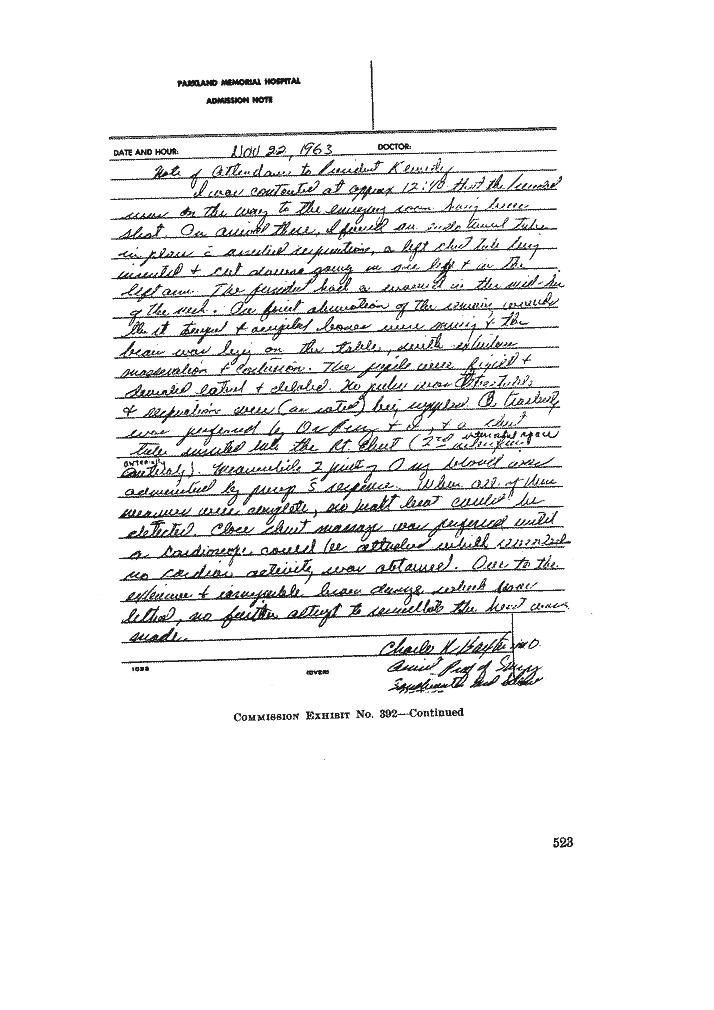 PARKLAND MEMORIAL HOSPITAL
ADMISSION NOTE
DATE AND HOUR: Nov 22, 1963 DOCTOR:
Note of Attendance to President Kennedy
I was contacted at approx 12:40 that the President
was on the way to the emergency room having been
shot. On arrival there, I found an endotracheal tube
in place c assisted respirations, a left chest tube being
inserted + cut downs going in one leg + in the
left arm. The President had a wound in the mid-line
of the neck. On first observation of the remaining wounds
the rt temporal + occipital bones were missing + the
brain was lying on the table, with extensive
maceration + contusion. The pupils were fixed +
deviated lateral + dilated. No pulse was detectable
+ respirations were (as noted) being supplied. A tracheotomy
was performed by Dr Perry + I, + a chest
tube inserted into the Rt. Chest (2nd interspace
anteriorly). Meanwhile 2 pints of O neg blood were
administered by pump s response. When all of these
measures were complete, no heart beat could be
detected. Close chest massage was performed until
a cardioscope could be attached which revealed
no cardiac activity was obtained. Due to the
extensive + irreparable brain damage which was
lethal, no further attempt to resuscitate the heart was
made.
Charles R. Baxter M.D.
Assoc Prof of Surgery
Southwestern Med School
1023 (OVER)
COMMISSION EXHIBIT NO. 392—Continued
523